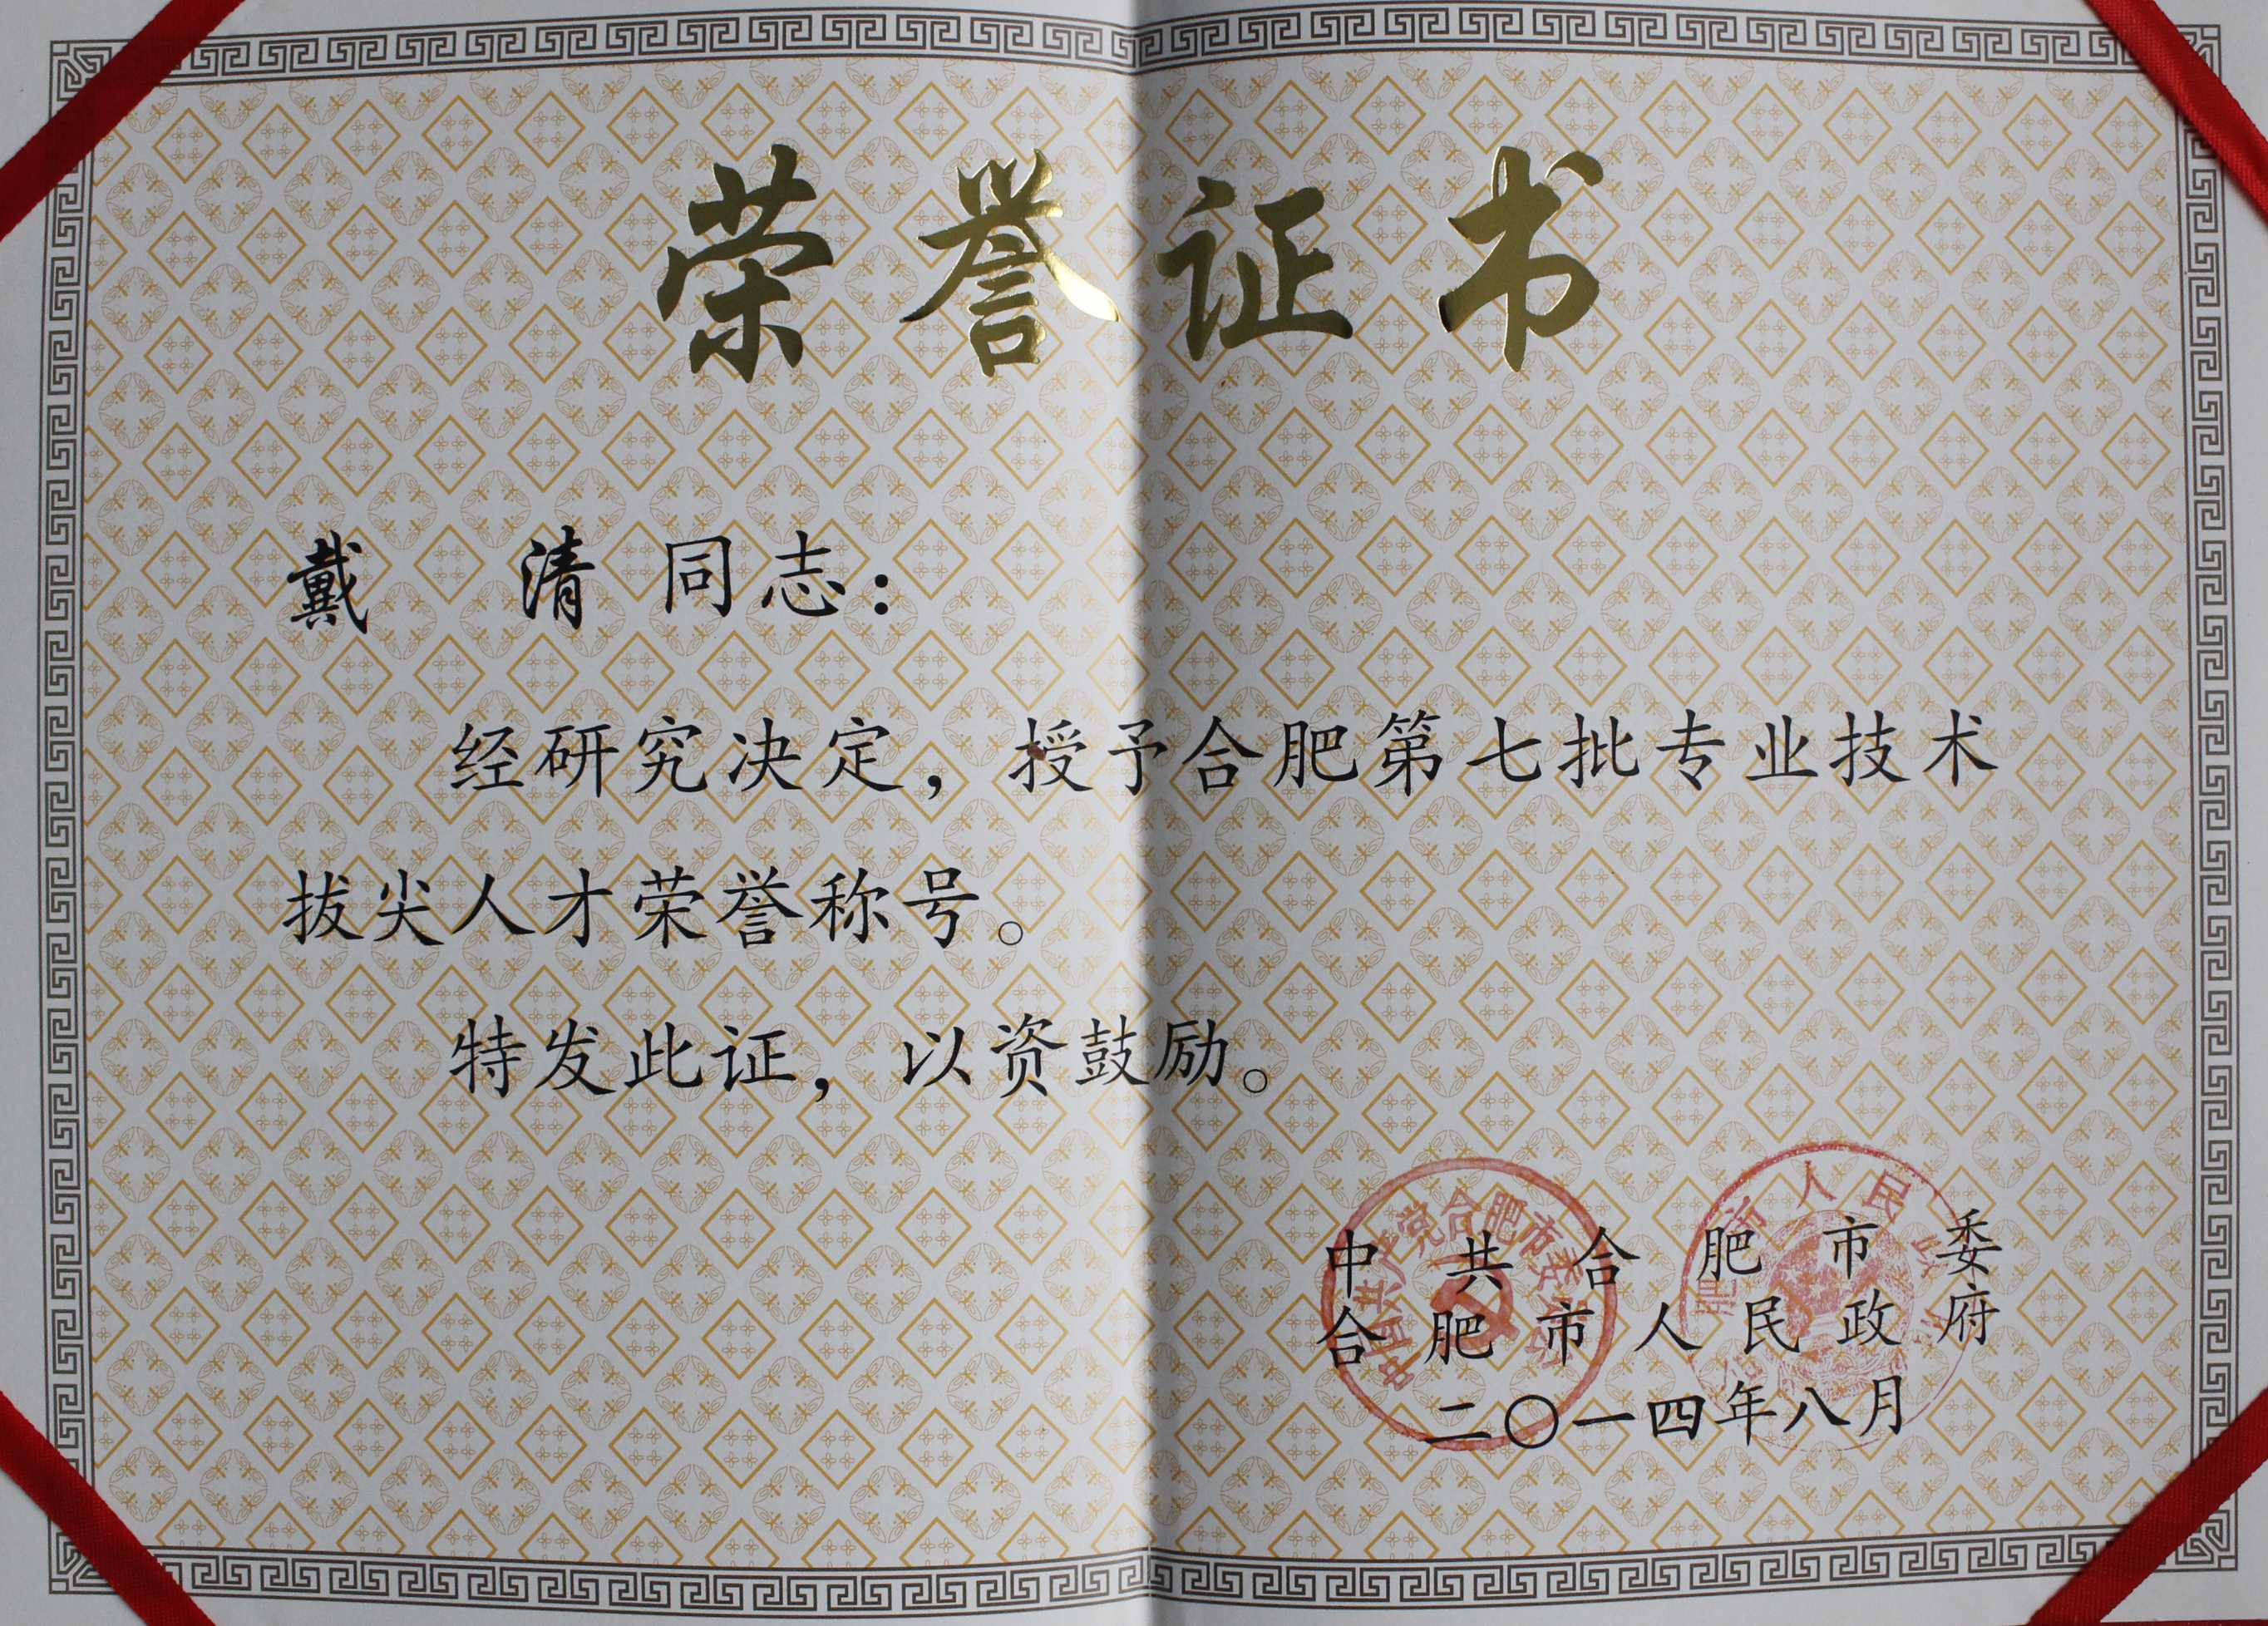 荣誉证书
戴 清 同志：
经研究决定，授予合肥第七批专业技术
拔尖人才荣誉称号。
特发此证，以资鼓励。
中共合肥市委
合肥市人民政府
二〇一四年八月
中国共产党合肥市委员会
肥市人民政